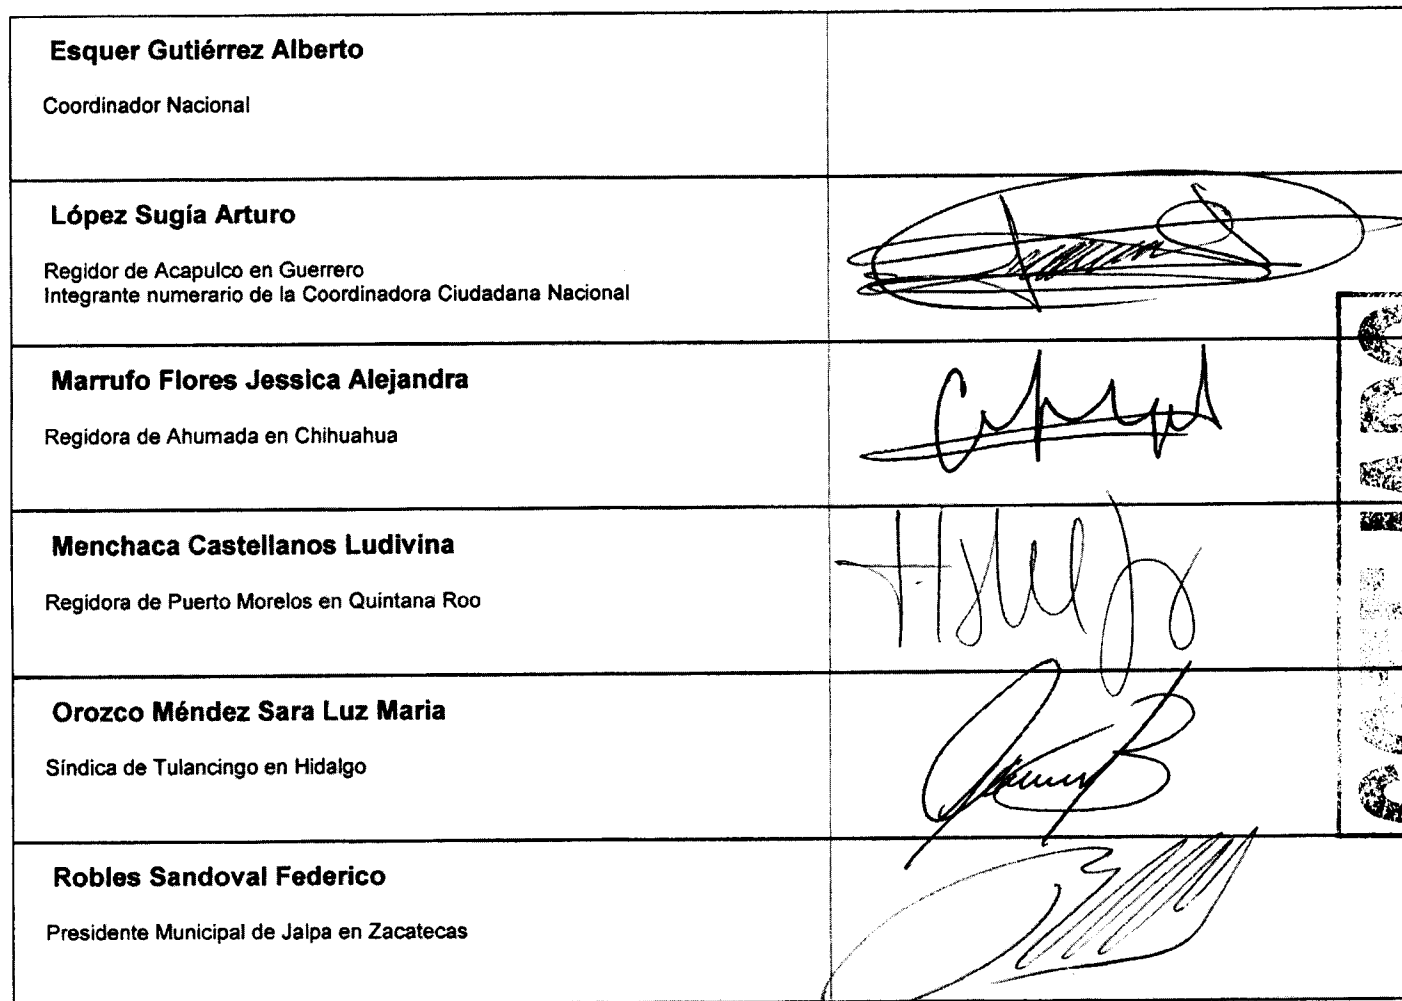 Esquer Gutiérrez Alberto
Coordinador Nacional
López Sugía Arturo
Regidor de Acapulco en Guerrero
Integrante numerario de la Coordinadora Ciudadana Nacional
Marrufo Flores Jessica Alejandra
Regidora de Ahumada en Chihuahua
Menchaca Castellanos Ludivina
Regidora de Puerto Morelos en Quintana Roo
Orozco Méndez Sara Luz Maria
Síndica de Tulancingo en Hidalgo
Robles Sandoval Federico
Presidente Municipal de Jalpa en Zacatecas